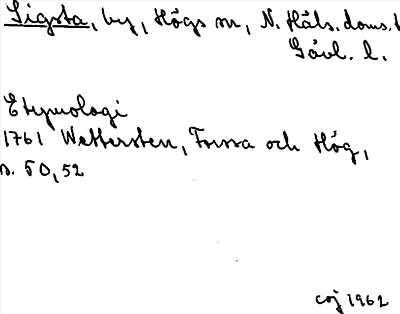 Sigsta, by, Högs sn, N. Häls. doms.
Gävl. l.
Etymologi
1761 Wettersten, Forssa och Hög,
s. 50, 52
coj 1962